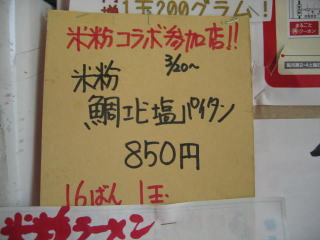 ※1玉200グラム!
米粉コラボ参加店!!
3/20~
米粉
鯛エビ塩パイタン
850円
16ばん 1玉
米粉ラーメン
まるごと
クーポン